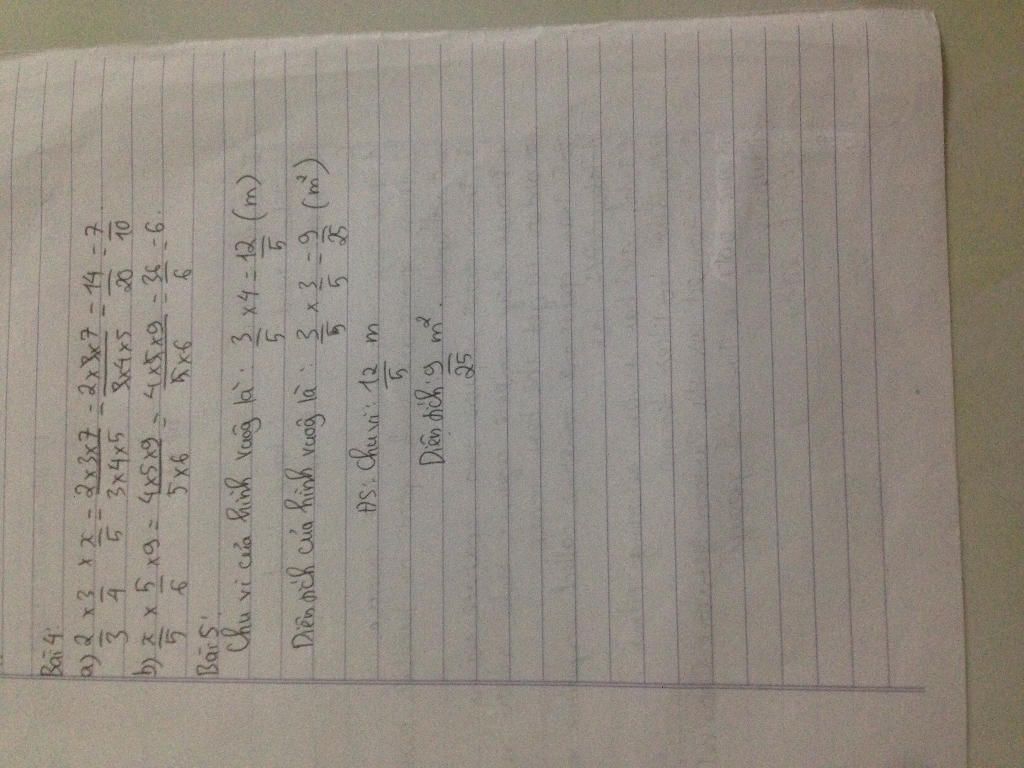 Bài 4:
a) 2/3 x 3/4 x x/5 = 2x3x7/3x4x5 = 2x3x7/3x4x5 = 14/20 = 7/10.
b) x/5 x 5/6 x 9 = 4x5x9/5x6 = 4x5x9/5x6 = 36/6 = 6.
Bài 5:
Chu vi của hình vuông là: 3/5 x 4 = 12/5 (m)
Diện tích của hình vuông là: 3/5 x 3/5 = 9/25 (m²)
ĐS: Chu vi: 12/5 m
Diện tích: 9/25 m².